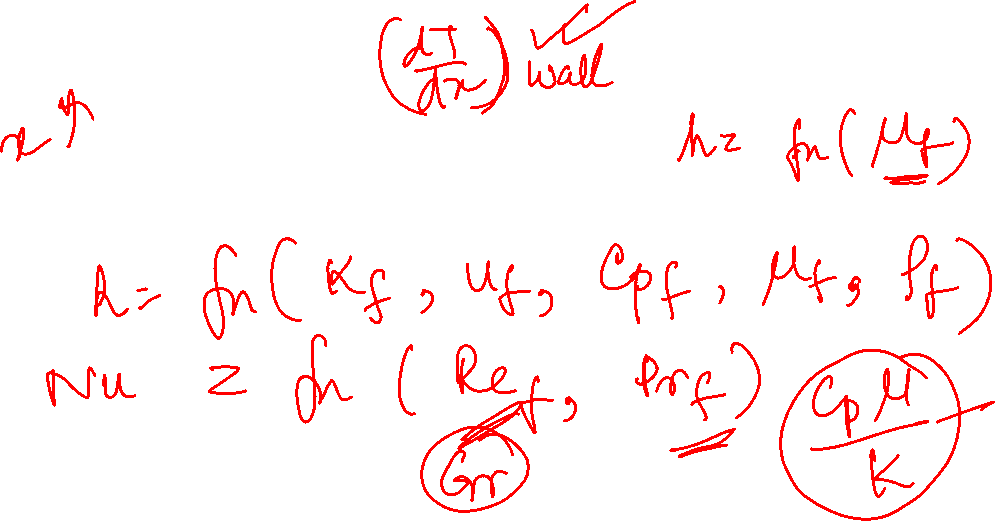 (dT/dx) wall ✓
x ↑
h = fn(μf)
h = fn(Kf, uf, Cpf, μf, ρf)
Nu = fn(Ref, Prf) Cpμ/K
Gr